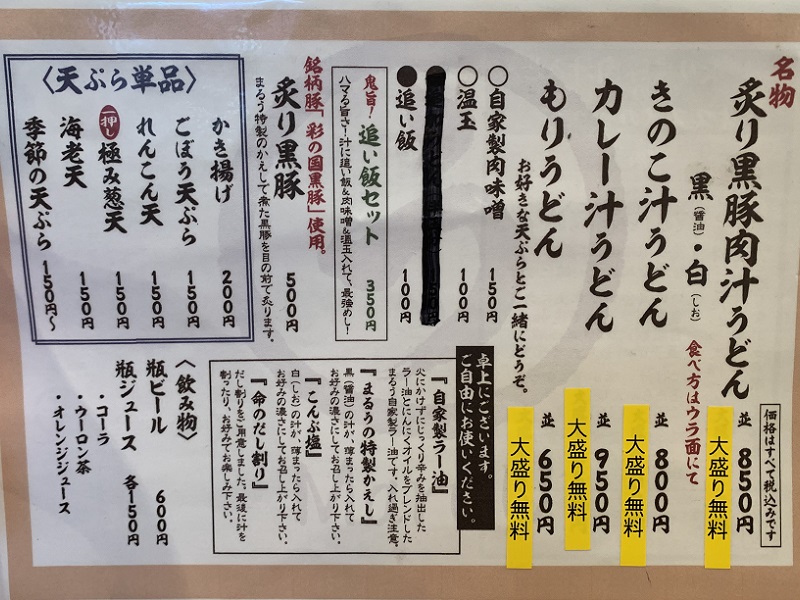 価格はすべて税込みです
名物
炙り黒豚肉汁うどん 並 850円
大盛り無料
黒(醤油)・白(しお)
食べ方はウラ面にて
きのこ汁うどん 並 800円
大盛り無料
カレー汁うどん 並 950円
大盛り無料
もりうどん 並 650円
大盛り無料
お好きな天ぷらとご一緒にどうぞ。
○自家製肉味噌 150円
○温玉 100円
●追い飯 100円
鬼旨!追い飯セット 350円
ハマる旨さ!汁に追い飯&肉味噌&温玉入れて、最強めし!
銘柄豚「彩の国黒豚」使用。
炙り黒豚 500円
まるう特製のかえしで煮た黒豚を目の前で炙ります。
〈天ぷら単品〉
かき揚げ 200円
ごぼう天ぷら 150円
れんこん天 150円
一押し 極み葱天 150円
海老天 150円
季節の天ぷら 150円〜
卓上にございます。
ご自由にお使いください。
『自家製ラー油』
火にかけずにじっくり辛みを抽出した
ラー油とにんにくオイルをブレンドした
まるう自家製ラー油です。入れ過ぎ注意。
『まるうの特製かえし』
黒(醤油)の汁が、薄まったら入れて
お好みの濃さにしてお召し上がり下さい。
『こんぶ塩』
白(しお)の汁が、薄まったら入れて
お好みの濃さにしてお召し上がり下さい。
『命のだし割り』
だし割りをご用意しました。最後に汁を
割ったり、お好みでお楽しみ下さい。
〈飲み物〉
瓶ビール 600円
瓶ジュース 各150円
・コーラ
・ウーロン茶
・オレンジジュース